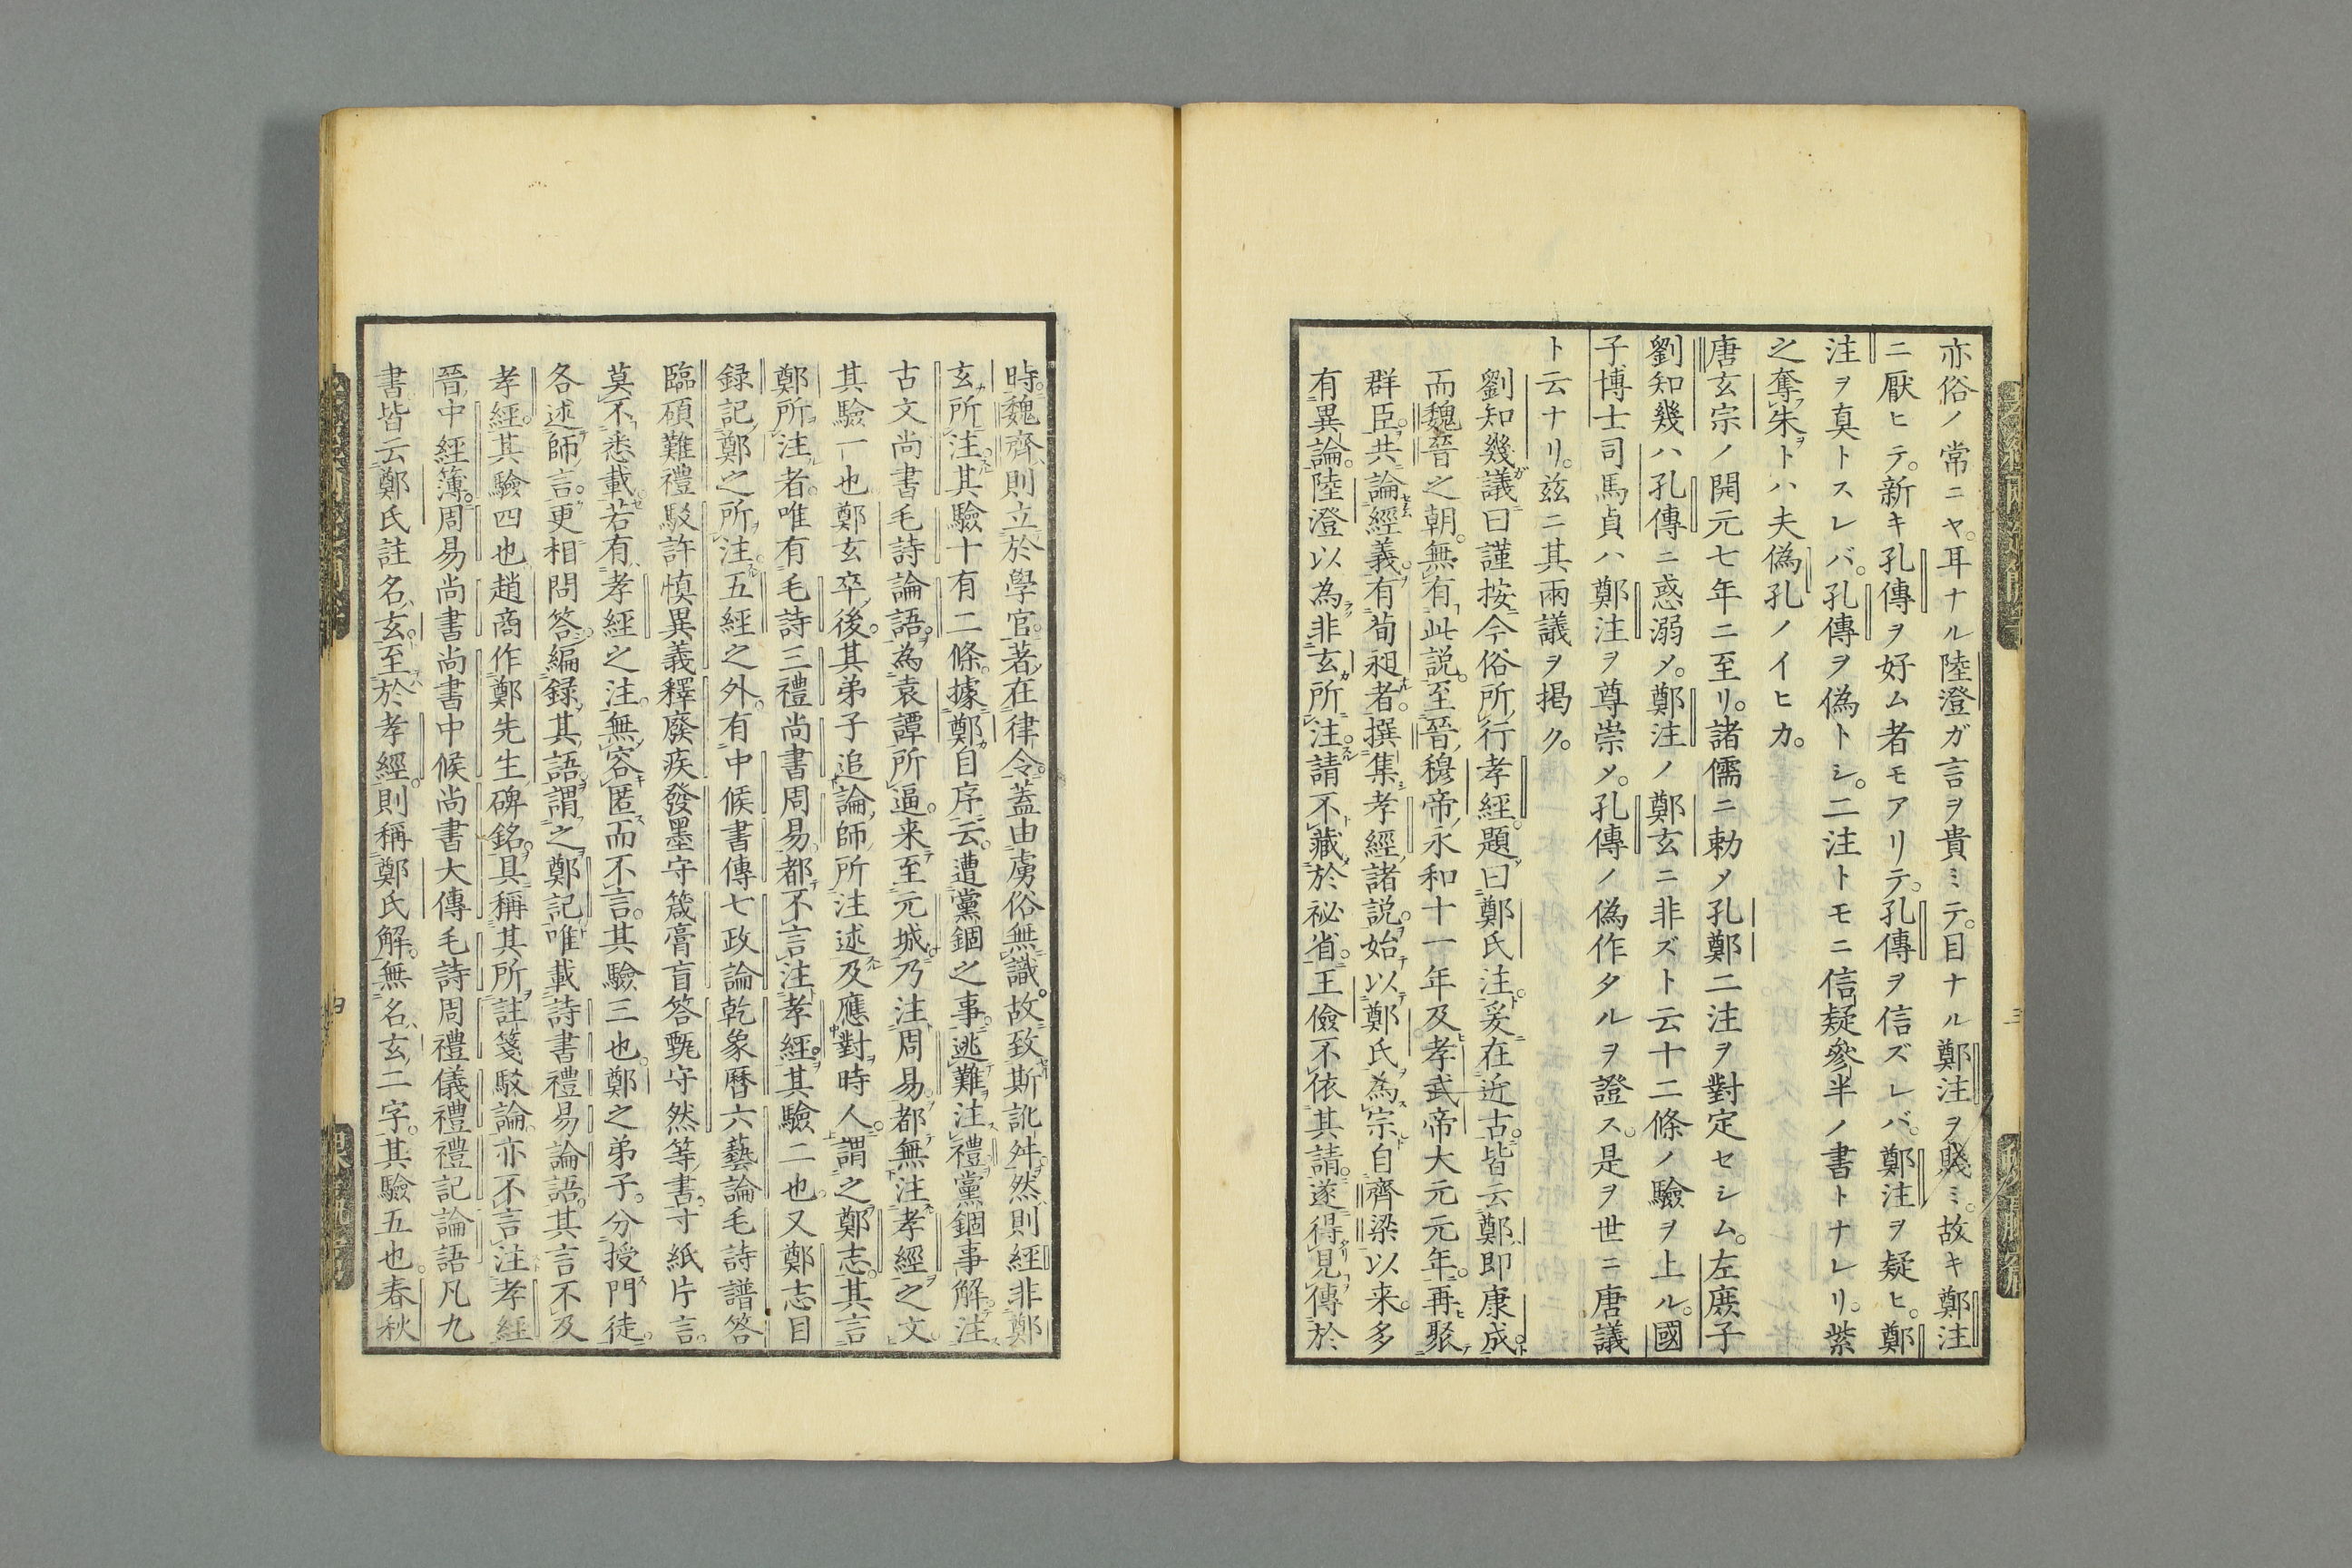 亦俗ノ常ニヤ。耳ナル陸澄ガ言ヲ貴ミテ。目ナル鄭注ヲ賤ミ。故キ鄭注
ニ厭ヒテ。新キ孔傳ヲ好ム者モアリテ。孔傳ヲ信ズレバ。鄭注ヲ疑ヒ。鄭
注ヲ真トスレバ。孔傳ヲ偽トシ。二注トモニ信疑參半ノ書トナレリ。紫
之奪朱トハ夫偽孔ノイヒカ。
唐玄宗ノ開元七年ニ至リ。諸儒ニ勅メ孔鄭二注ヲ對定セシム。左庶子
劉知幾ハ孔傳ニ惑溺メ。鄭注ノ鄭玄ニ非ズト云十二條ノ驗ヲ上ル。國
子博士司馬貞ハ鄭注ヲ尊崇メ。孔傳ノ偽作タルヲ證ス。是ヲ世ニ唐議
ト云ナリ。玆ニ其兩議ヲ掲ク。
劉知幾議曰謹按今俗所行孝經題曰鄭氏注。爰在近古。皆云鄭即康成。
而魏晉之朝。無有此説。至晉穆帝永和十一年及孝武帝大元元年。再聚
群臣。共論經義。有荀昶者。撰集孝經諸説。始以鄭氏為宗自齊梁以来。多
有異論。陸澄以為非玄所注。請不藏於祕省。王儉不依其請。遂得見傳於
時。魏齊則立於學官。著在律令。蓋由虜俗無識。故致斯訛舛。然則經非鄭
玄所注。其驗十有二條。據鄭自序云。遭黨錮之事。逃難注禮黨錮事解。注
古文尚書毛詩論語。為袁譚所逼。来至元城乃注周易。都無注孝經之文。
其驗一也鄭玄卒後。其弟子追論師所注述及應對時人。謂之鄭志。其言
鄭所注者。唯有毛詩三禮尚書周易。都不言注孝經。其驗二也。又鄭志目
録記鄭之所注。五經之外。有中候書傳七政論乾象曆六藝論毛詩譜答
臨碩難禮駁許慎異義釋廢疾發墨守箴膏肓答甄守然等書。寸紙片言。
莫不悉載。若有孝經之注。無容匿而不言。其驗三也。鄭之弟子。分授門徒。
各述師言。更相問答。編録其語。謂之鄭記。唯載詩書禮易論語。其言不及
孝經。其驗四也。趙商作鄭先生碑銘。具稱其所註箋駁論。亦不言注孝經
晉中經簿。周易尚書尚書中候尚書大傳毛詩周禮儀禮禮記論語凡九
書。皆云鄭氏註名玄。至於孝經。則稱鄭氏解。無名玄二字。其驗五也。春秋